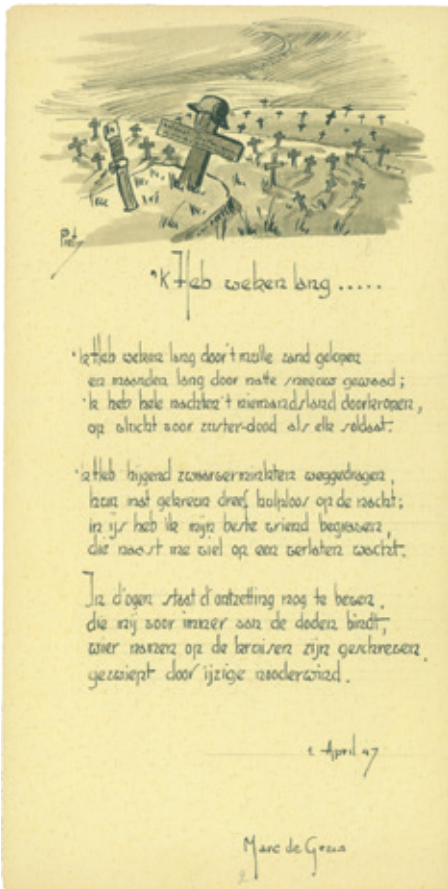 Piet
'k Heb weken lang .....
'k Heb weken lang door 't mulle zand gelopen
en maanden lang door natte sneeuw gewaad;
'k heb hele nachten 't niemandsland doorkropen,
op vlucht voor zuster-dood als elk soldaat.
'k Heb hijgend zwaarverminkten weggedragen,
hun mat gekreun dreef hulploos op de nacht;
in ijs heb ik mijn beste vriend begraven,
die naast me viel op een verlaten wacht.
In d'ogen staat d'ontzetting nog te beven,
die mij voor immer aan de doden bindt,
wier namen op de kruisen zijn geschreven
gezwiept door ijzige noorderwind.
1 April 47
Marc de
2